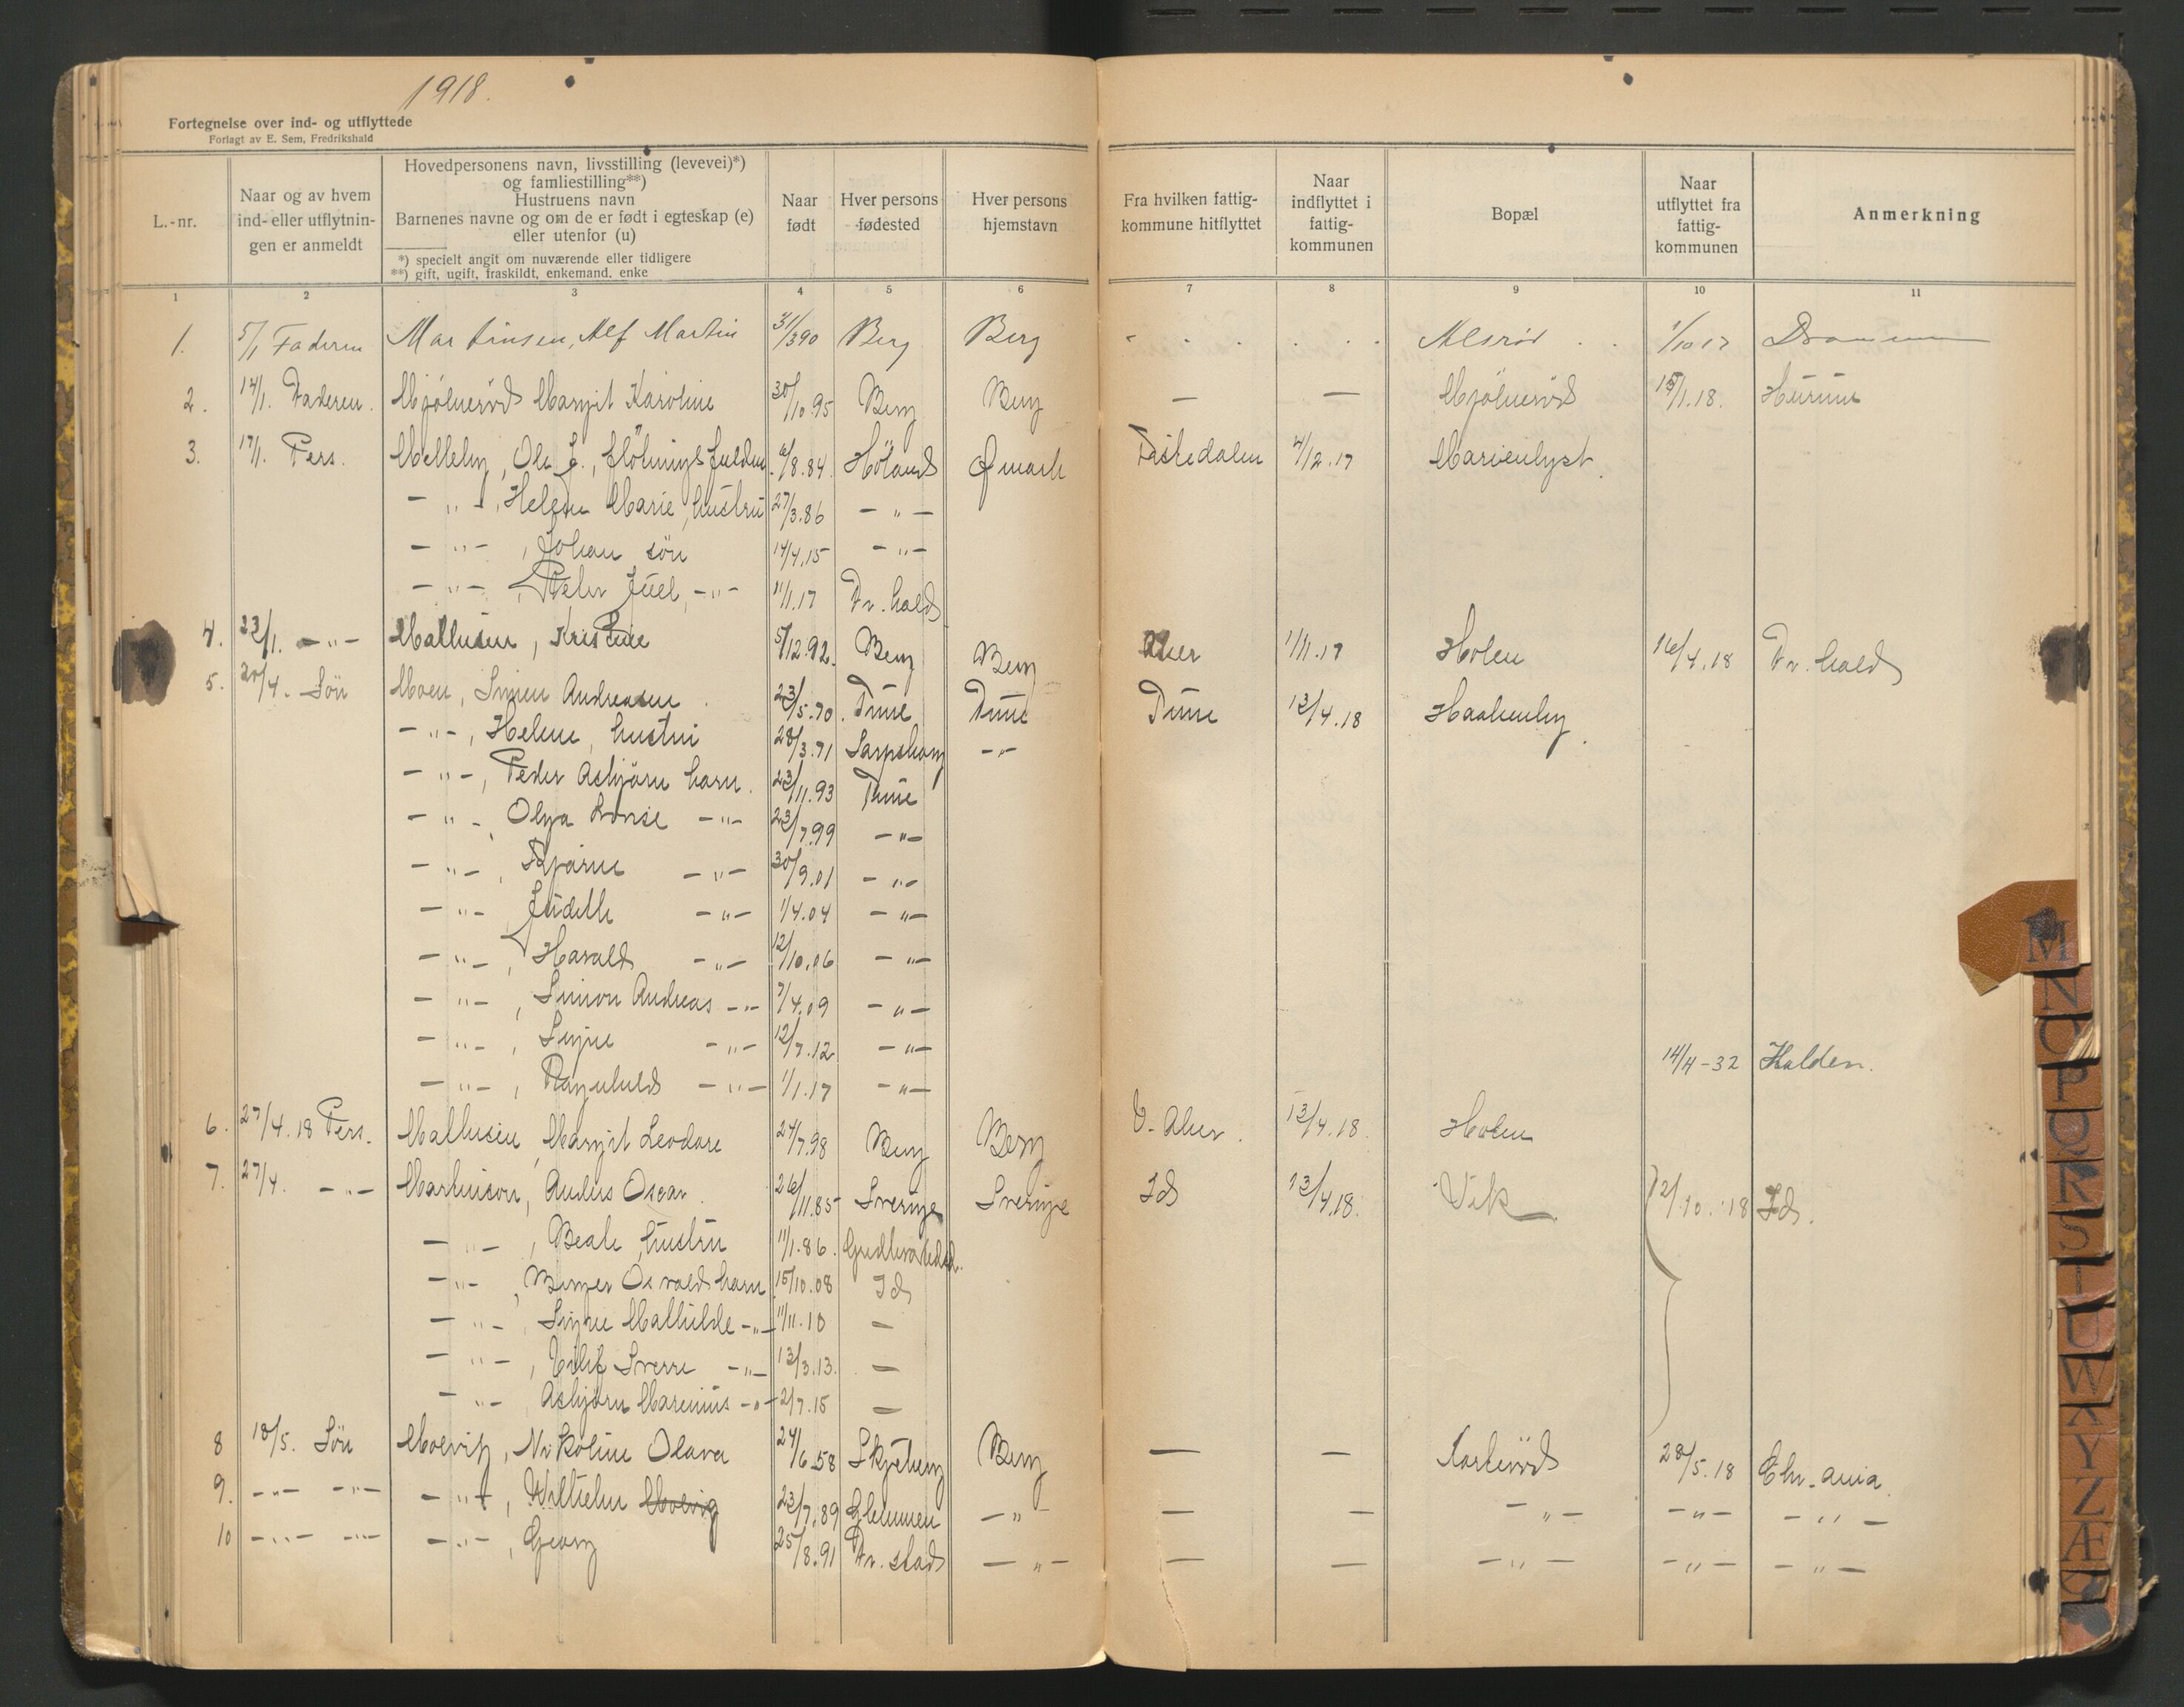 1918.
Fortegnelse over ind- og utflyttede
Forlagt av E. Sem, Fredrikshald
L.-nr.
Naar og av hvem
ind- eller utflytnin-
gen er anmeldt
Hovedpersonens navn, livsstilling (levevei)*)
og famliestilling**)
Hustruens navn
Barnenes navne og om de er født i egteskap (e)
eller utenfor (u)
*) specielt angit om nuværende eller tidligere
**) gift, ugift, fraskildt, enkemand, enke
Naar
født
Hver persons
fødested
Hver persons
hjemstavn
Fra hvilken fattig-
kommune hitflyttet
Naar
indflyttet i
fattig-
kommunen
Bopæl
Naar
utflyttet fra
fattig-
kommunen
Anmerkning
1 2 3 4 5 6 7 8 9 10 11
1. 5/1 Faderen Martinsen, Alf Martin 31/3 90 Berg Berg Alsrød 1/10 17 Drammen
2. 14/1. Faderen. Mjölneröd Margit Karoline 30/10.95 Berg Berg — — Mjölneröd 15/1.18. Hurum
3. 17/1. Pers. Melleby, Ole J., 6/8.84. Höland Ømark Tistedalen 4/12.17 Marienlyst.
— " —, Helene Marie, hustru 27/3.86 — " —
— " —, Johan sön 14/4.15 — " —
— " —, Peder Juel, — " — 11/1.17 Fr.hald
4. 23/1. — " — Mathisen, Kristine 5/12.92. Berg Berg Aker 1/11.17 Holen 16/4.18 Fr.hald
5. 20/4. Sön Moen, Simen Andreasen 23/5.70. Tune Tune Tune 13/4.18 Haakenby.
— " —, Helene, hustru 28/3.71 Sarpsborg — " —
— " —, Peder Asbjörn barn. 23/11.93 Tune
— " —, Olga Lovise — " — 23/7.99 — " —
— " —, Bjarne — " — 30/9.01 — " —
— " — Judith — " — 1/4.04 — " —
— " —, Harald — " — 12/10.06 — " —
— " —, Simon Andreas — " — 7/4.09 — " —
— " —, Signe — " — 12/7.12 — " — 14/4-32 Halden.
— " —, Ragnhild — " — 1/1.17 — " —
6. 27/4.18 Pers. Mathisen, Margit Leodore 24/7.98 Berg Berg V. Aker. 13/4.18. Holen
7. 27/4. — " — Martinson, Anders Oscar. 26/11.85 Sverige Sverige Id 13/4.18. Vik 12/10.18 Id.
— " —, Beate, hustru 11/1.86.
— " —, Birger Osvald barn 15/10.08 Id
— " —, Signe Mathilde — " — 11/11.10 —
— " —, Sverre — " — 13/3.13. —
— " — Asbjörn Marinius — " — 2/7.15 —
8 18/5. Sön Moevig, Nikoline Olava 24/6.58 Skjeberg Berg — — 28/5.18 Chr.ania.
9. — " — — " — — " —, Wilhelm Moevig 23/7.89 Glemmen — " — — — — " — — " — — " —
10 — " — — " — — " —, Georg 25/8.91 Fr.stad — " — — — — " — — " — — " —
M
N
O
P
Q
R
S
T
U
W
X
Y
Z
Æ
Ø